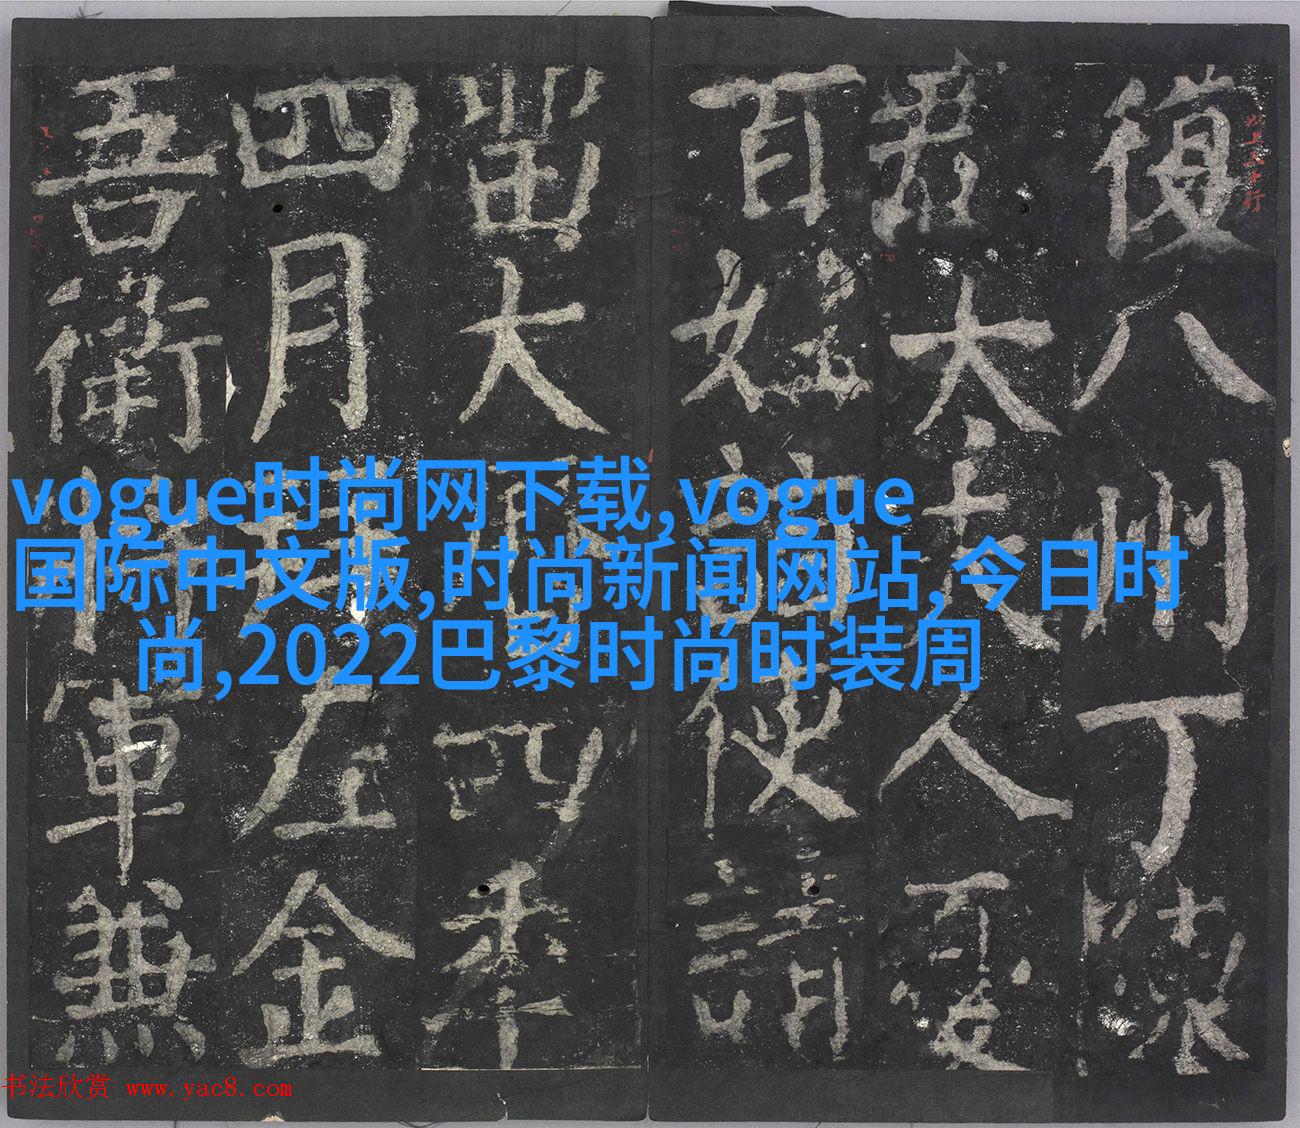 vogue时尚网下载,vogue
国际中文版,时尚新闻网站,今日时
尚,2022巴黎时尚时装周
復八州丁陳
郡太夫人憂
百姓詣使請
留大曆四年
四月拜左金
吾衛將軍兼
书法欣赏 www.yac8.com